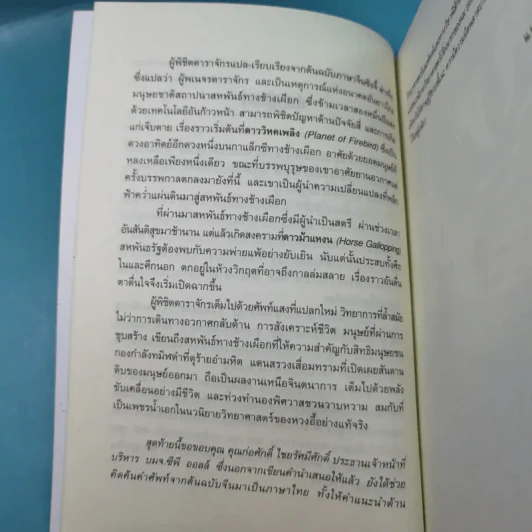 ผู้พิชิตดาราจักรแปล-เรียบเรียงจากต้นฉบับภาษาจีนชิงจี้
ซึ่งแปลว่า ผู้พเนจรดาราจักร และเป็นเหตุการณ์แห่งอนาคตอัน
มนุษยชาติสถาปนาสหพันธ์ทางช้างเผือก ซึ่งข้ามเวลาสอง
ด้วยเทคโนโลยีอันก้าวหน้า สามารถพิชิตปัญหาด้านปัจจัยสี่ และการ
แก่เจ็บตาย เรื่องราวเริ่มต้นที่ดาววิหคเพลิง (Planet of Firebird) ซึ่งเป็น
ดวงอาทิตย์อีกดวงหนึ่งบนกาแล็กซีทางช้างเผือก อาศัยด้วยยอดมนุษย์
หลงเหลือเพียงหนึ่งเดียว ขณะที่บรรพบุรุษของเขาอาศัยยานอวกาศ
ครั้งบรรพกาลตกลงมายังที่นี้ และเขาเป็นผู้นำความเปลี่ยนแปลงที่พลิก
ฟ้าคว่ำแผ่นดินมาสู่สหพันธ์ทางช้างเผือก
ที่ผ่านมาสหพันธ์ทางช้างเผือกซึ่งมีผู้นำเป็นสตรี ผ่านช่วงเวลา
อันสันติสุขมาช้านาน แต่แล้วเกิดสงครามที่ดาวม้าแหงน (Horse Galloping)
สหพันธรัฐต้องพบกับความพ่ายแพ้อย่างยับเยิน นับแต่นั้นประสบทั้งศึก
ในและศึกนอก ตกอยู่ในห้วงวิกฤตที่อาจถึงกาลล่มสลาย เรื่องราวอันตื่น
ตาตื่นใจจึงเริ่มเปิดฉากขึ้น
ผู้พิชิตดาราจักรเต็มไปด้วยศัพท์แสงที่แปลกใหม่ วิทยาการที่ล้ำสมัย
ไม่ว่าการเดินทางอวกาศกลับด้าน การสังเคราะห์ชีวิต มนุษย์ที่ผ่านการ
ชุบสร้าง เขียนถึงสหพันธ์ทางช้างเผือกที่ให้ความสำคัญกับสิทธิมนุษยชน
กองกำลังทมิฬดำที่ดุร้ายอำมหิต แดนสรวงเสื่อมทรามที่เปิดเผยสันดาน
ดิบของมนุษย์ออกมา ถือเป็นผลงานเหนือจินตนาการ เต็มไปด้วยพลัง
ขับเคลื่อนอย่างมีชีวิต และท่วงทำนองพิศวาสชวนวาบหวาม สมกับที่
เป็นเพชรน้ำเอกในนวนิยายวิทยาศาสตร์ของหวงอี้อย่างแท้จริง
สุดท้ายนี้ขอขอบคุณ คุณก่อศักดิ์ ไชยรัศมีศักดิ์ ประธานเจ้าหน้าที่
บริหาร บมจ.ซีพี ออลล์ ซึ่งนอกจากเขียนคำนำเสนอให้แล้ว ยังได้ช่วย
คิดค้นคำศัพท์จากต้นฉบับจีนมาเป็นภาษาไทย ทั้งให้คำแนะนำด้าน